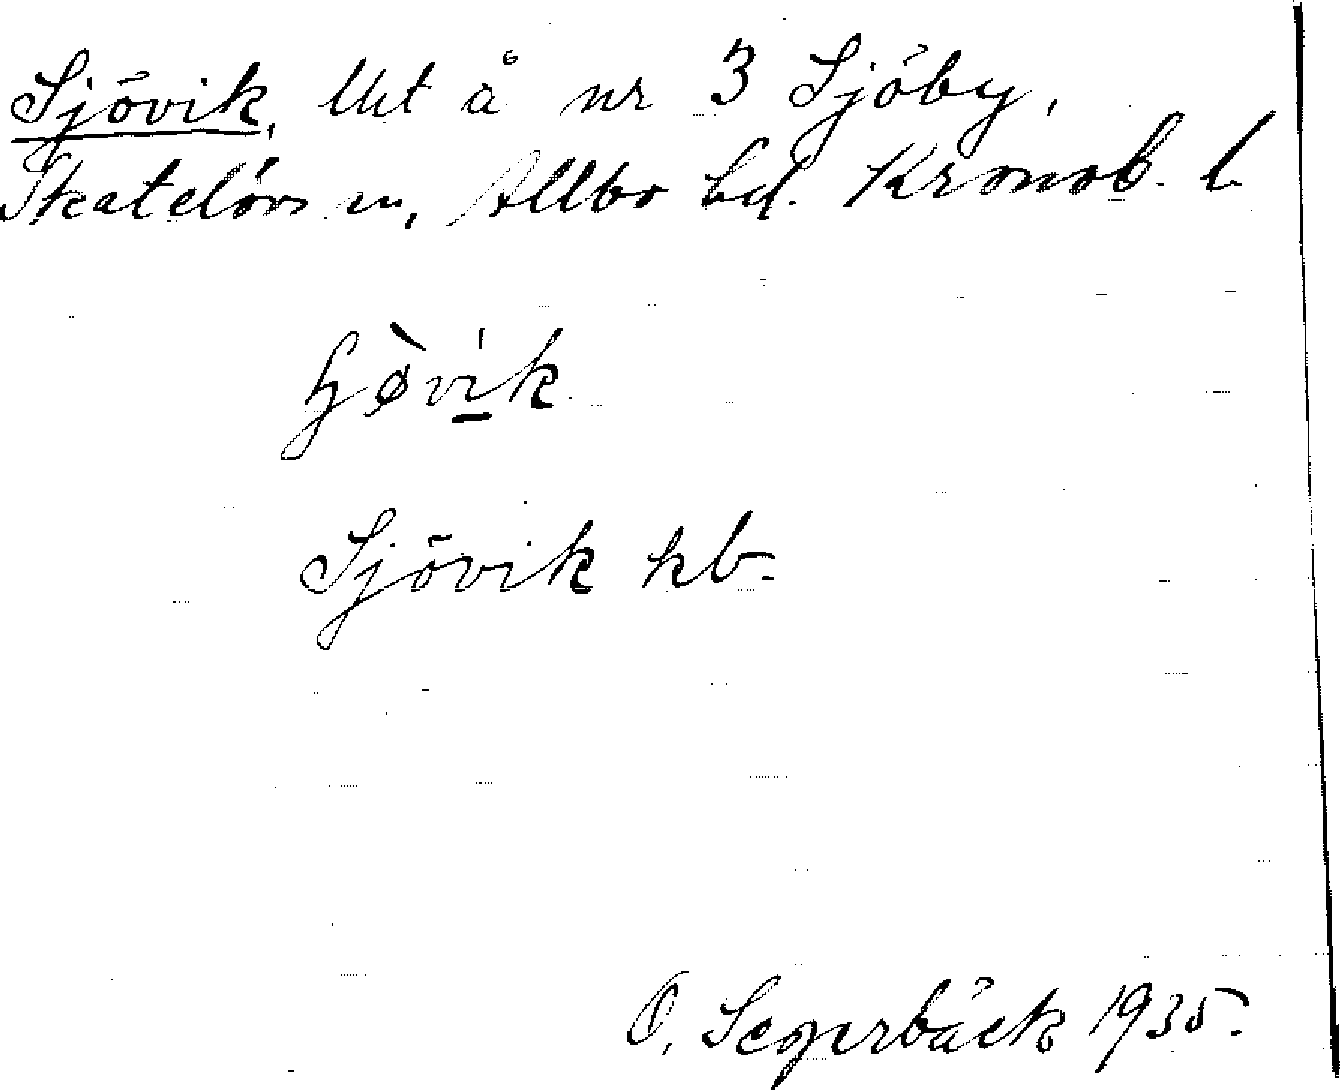 Sjövik, Utt å nr 3 Sjöby,
Skatelövs sn, Allbo hd. Kronob. l.
ɧøvik
Sjövik kb.
O. Segerbäck 1935.